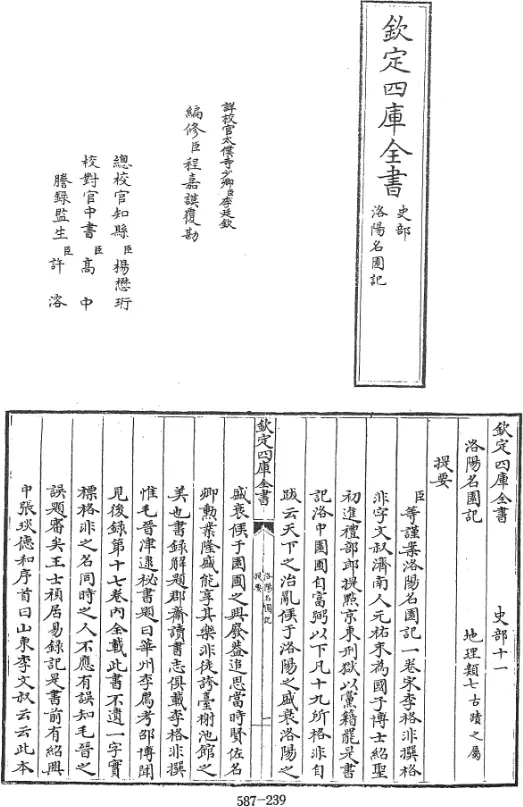 欽定四庫全書
史部
洛陽名園記
詳校官太僕寺少卿臣李廷欽
編修臣程嘉謨覆勘
總校官知縣臣楊懋珩
校對官中書臣高中
謄錄監生臣許溶
欽定四庫全書 史部十一
洛陽名園記 地理類七古蹟之屬
提要
臣等謹案洛陽名園記一卷宋李格非撰格
非字文叔濟南人元祐末為國子博士紹聖
初進禮部郎提㸃京東刑獄以黨籍罷是書
記洛中園圃自富弼以下凡十九所格非自
跋云天下之治亂候于洛陽之盛衰洛陽之
欽定四庫全書
洛陽名園記
提要
一
盛衰候于園圃之興廢蓋追思當時賢佐名
卿勲業隆盛能享其樂非徒誇臺榭池館之
美也書録解題郡齋讀書志俱載李格非撰
惟毛晉津逮秘書題曰華州李廌考邵博聞
見後録第十七卷内全載此書不遺一字實
標格非之名同時之人不應有誤知毛晉之
誤題審矣王士禎居易録記是書前有紹興
中張琰德和序首曰山東李文叔云云此本
587-239